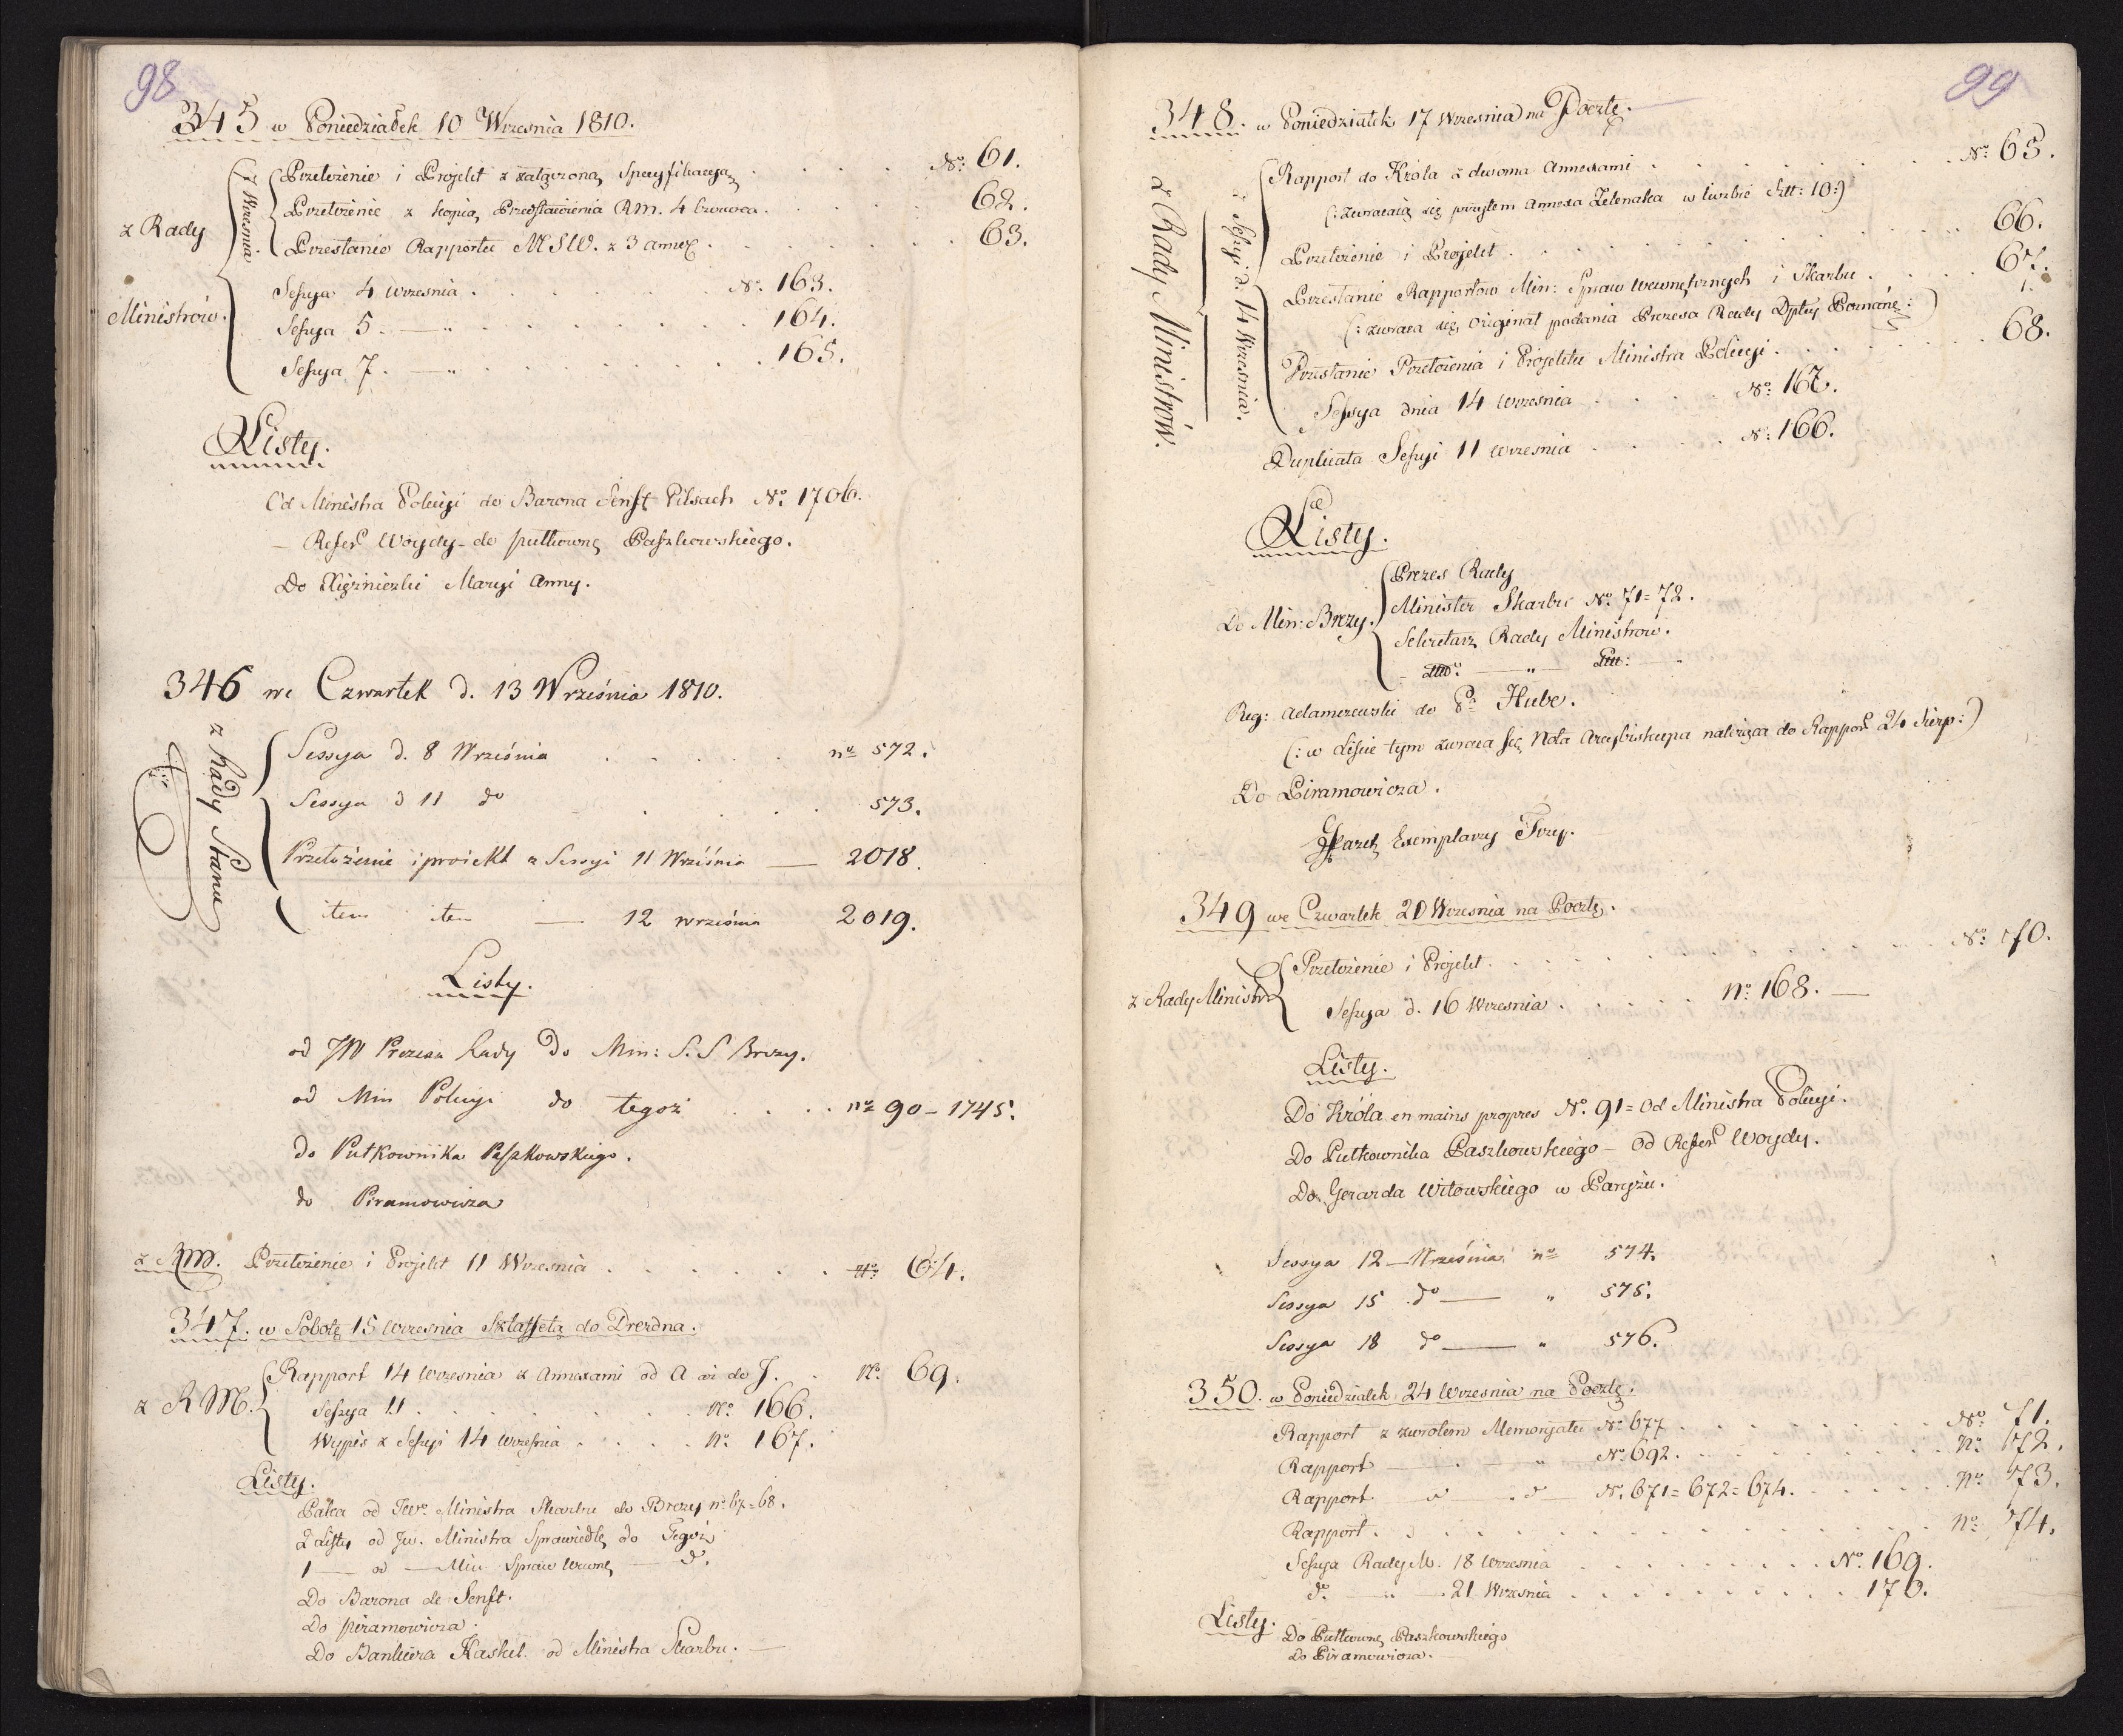 98
345 w Poniedziałek 10 Wrzesnia 1810.
z Rady Ministrów.
7 Wrzesnia.
Przełożenie i Projekt z załączoną Specyfikacyą . . . . No: 61.
Przełożenie z kopią Przedstawienia RM. 4 Czerwca . . . . 62.
Przesłanie Rapportu MSW. z 3 annex . . . . 63.
Sessya 4 Wrzesnia . . . . No: 163.
Sessya 5. — " . . . . 164.
Sessya 7. — " . . . . 165.
Listy.
Od Ministra Policyi do Barona Senft Pilsach No: 1706.
— Refer. Woydy - do pułkownę Paszkowskiego.
Do Xiężniczki Maryi Anny.
346 we Czwartek d. 13 Września 1810.
z Rady Stanu
Sessya d. 8 Września . . . . no 572.
Sessya d 11 do . . . . 573.
Przełożenie i proiekt z Sessyi 11 Września — 2018.
item item — 12 września 2019.
Listy.
od JW Prezesa Rady do Min: S. S Brezy.
od Min Policyi do tegoż . . . . no 90 - 1745.
do Pułkownika Paszkowskiego.
do Piramowicza
z RM. Przełożenie i Projekt 11 Wrzesnia . . . . No: 64.
347. w Sobotę 15 Wrzesnia Sztaffetą do Drezdna.
z RM.
Rapport 14 Wrzesnia z Annexami od A aż do J. . No: 69.
Sessya 11 . . . . No: 166.
Wypis z Sessyi 14 Wrzesnia . . . . No: 167.
Listy.
Paka od JW. Ministra Skarbu do Brezy no 67=68.
2 Listy od Jw. Ministra Sprawiedlę do Tegoż
1 — od — Min Spraw Wewnę — do.
Do Barona de Senft.
Do piramowicza.
Do Bankiera Kaskel. od Ministra Skarbu. —
99
348. w Poniedziałek 17 Wrzesnia na Pocztę.
z Rady Ministrów.
z Sessyi d. 14 Wrzesnia.
Rapport do Króla z dwoma Annexami . . . . No: 65.
(: zwracaią się przytem Annexa Zelenaka w liczbie Szt: 10:)
Przełożenie i Projekt . . . . 66.
Przesłanie Rapportów Min: Spraw Wewnętrznych i Skarbu . . . . 67.
(: zwraca się Originał podania Prezesa Rady Dptuy Poznanę :)
Przesłanie Przełożenia i Projektu Ministra Policyi . . . . 68.
Sessya dnia 14 Wrzesnia . . . . No: 167.
Duplicata Sessyi 11 Wrzesnia . . . . No: 166.
Listy.
Do Min: Brezy.
Prezes Rady
Minister Skarbu No: 71=72.
Sekretarz Rady Ministrów.
Reg: Adamczewski do Pa Hube.
(: w Liście tym zwraca się Nota Arcybiskupa należąca do Rappor. 24 Sierp:)
Do Piramowicza.
349 we Czwartek 20 Wrzesnia na Pocztę.
z Rady Ministr
Przełożenie i Projekt . . . . No: 70.
Sessya d. 16 Wrzesnia . . . . No: 168. —
Listy.
Do Króla en mains propres No. 91 = Od Ministra Policyi.
Do Pułkownika Paszkowskiego - Od Refer. Woydy.
Do Gerarda Witowskiego w Paryżu.
Sessya 12 — Września no 574.
Sessya 15 do — " 575.
Sessya 18 do — " 576.
350. w Poniedziałek 24 Wrzesnia na Pocztę.
Rapport z zwrotem Memoryału No 677 . . . . No: 71.
Rapport — " — " No: 692. . . . . No: 72.
Rapport — " — do — No. 671=672=674. . . . . No: 73.
Rapport . . . . No: 74.
Sessya Rady M. 18 Wrzesnia . . . . No. 169.
do. — " — 21 Wrzesnia . . . . 170.
Listy.
Do Pułkownę Paszkowskiego
Do Piramowicza.